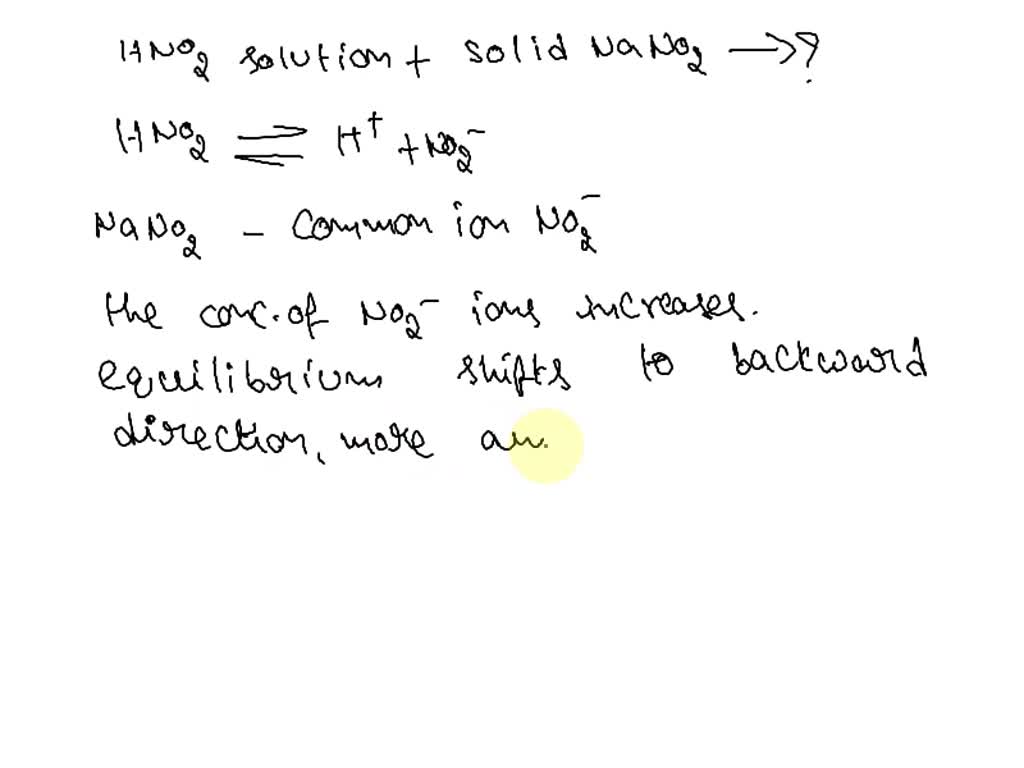 HNO₂ solution + solid NaNO₂ →?
HNO₂ ⇌ H⁺ + NO₂⁻
NaNO₂ - Common ion NO₂⁻
the conc. of NO₂⁻ ions increases.
equilibrium shifts to backward
direction, more am